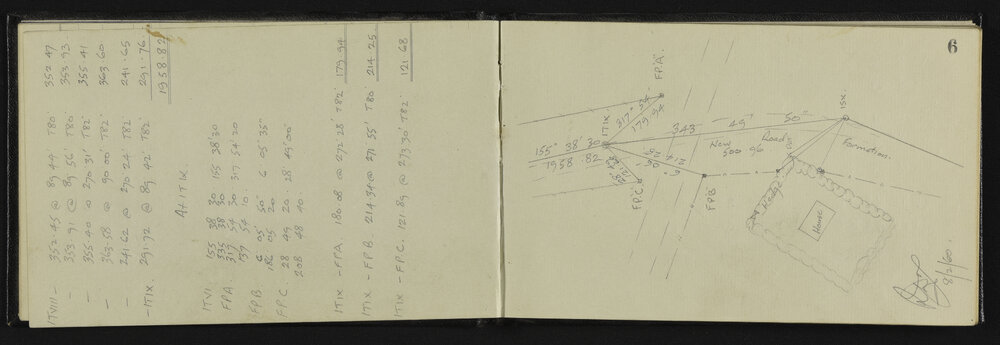 ITVIII - 352.45 @ 89 49' T80 352.47
- 353.91 @ 89 56' T80 353.93
- 355.40 @ 270 31' T82' 355.41
- 363.58 @ 90 00' T82' 363.60
- 241.62 @ 270 24' T82' 241.65
- ITIX 291.72 @ 89 42' T82' 291.76
1958.82
At ITIX.
ITVI. 155 38 30 155 38' 30
FPA 335 38 30
317 54 30 317 54' 20
137 54 10
FPB. 6 05' 50" 6 05 35"
186 05 20
FPC. 28 49 20 28 49' 00"
208 48 40
ITIX - FPA. 180.08 @ 272 28' T82' 179.94
ITIX - FPB. 214.34 @ 271 55' T80' 214.25
ITIX - FPC. 121.89 @ 273 30' T82' 121.68
6
FP.'A'.
317° 54'
179.94
ITIX
155° 38' 30
1958.82
343 49' 50"
ISX
New Road
500
Formation.
214.25
6°
28°
121.68
FP.C.
FP.'B'
Hedge
House
8/2/60.